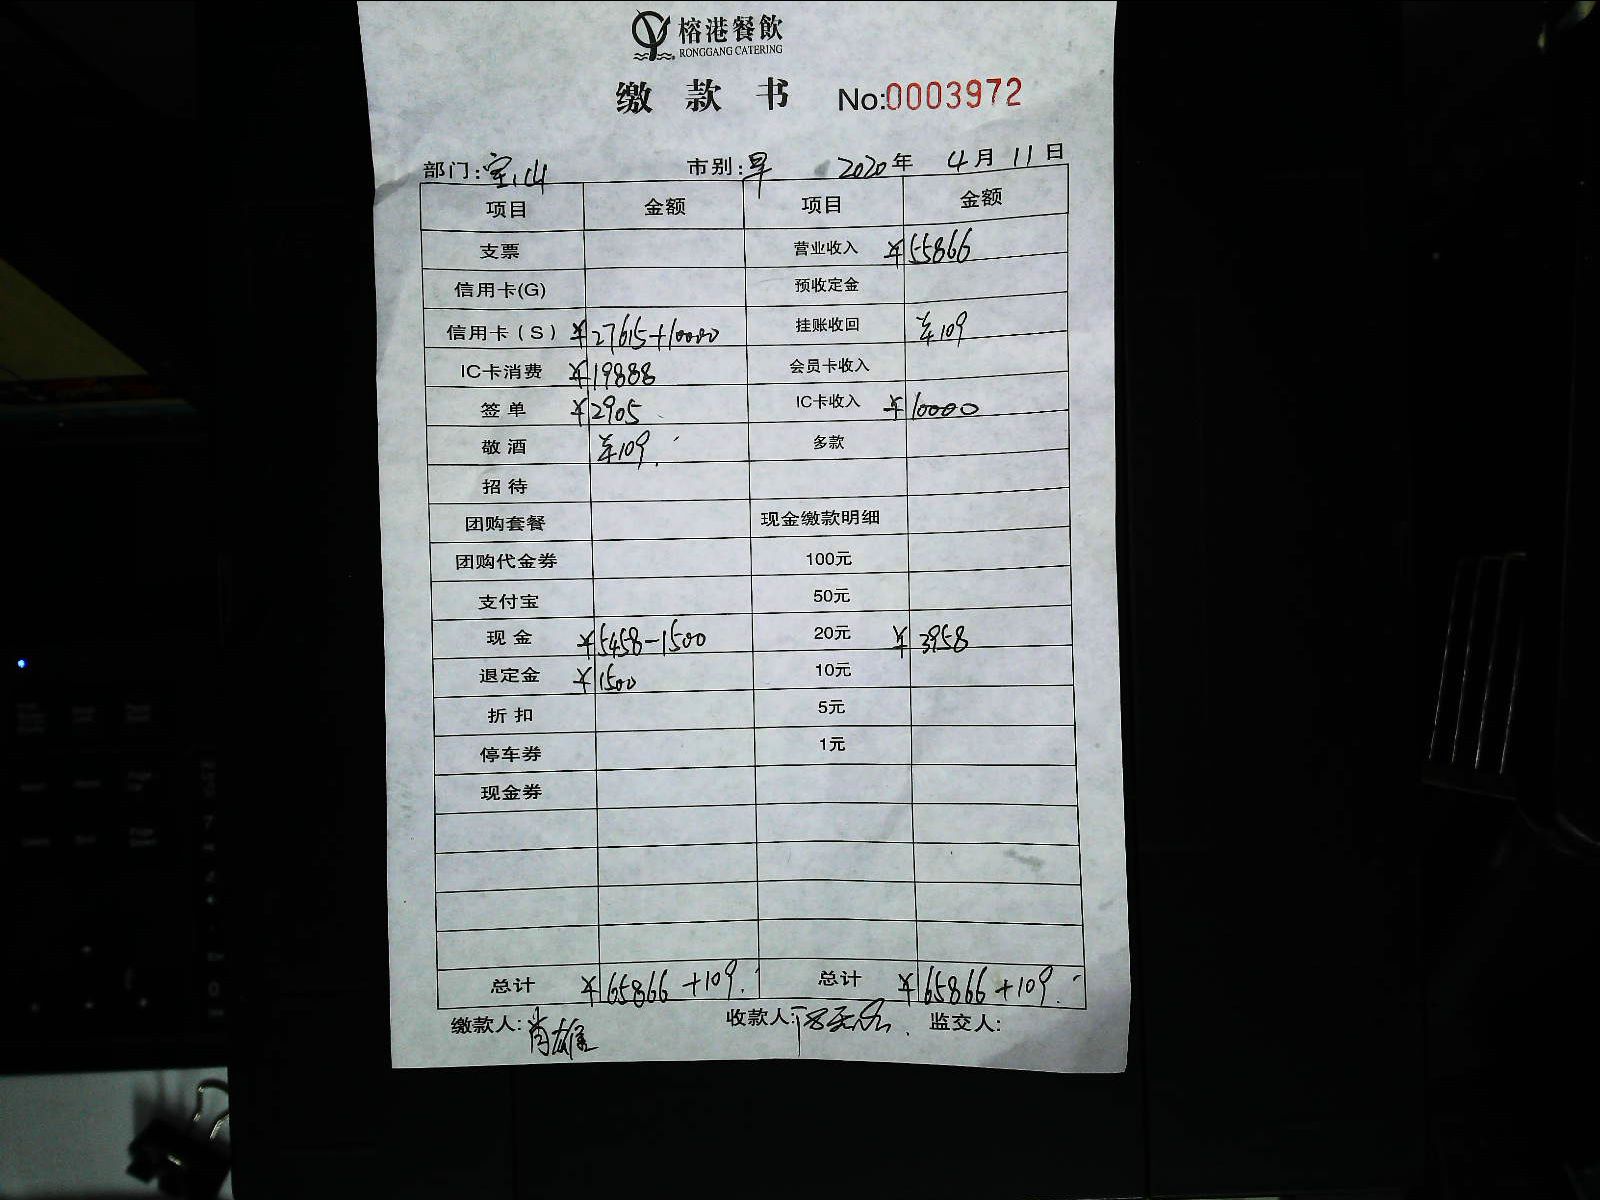 榕港餐飲
RONGGANG CATERING
缴款书 No:0003972
部门:宝山 市别:早 2020年 4月 11日
项目 金额 项目 金额
支票 营业收入 ¥55866
信用卡(G) 预收定金
信用卡(S) ¥27615+10000 挂账收回 车109
IC卡消费 ¥19888 会员卡收入
签单 ¥2905 IC卡收入 ¥10000
敬酒 车109 多款
招待
团购套餐 现金缴款明细
团购代金券 100元
支付宝 50元
现金 ¥5458-1500 20元 ¥3958
退定金 ¥1500 10元
折扣 5元
停车券 1元
现金券
总计 ¥65866+109. 总计 ¥65866+109.
缴款人:肖雄 收款人: 监交人: